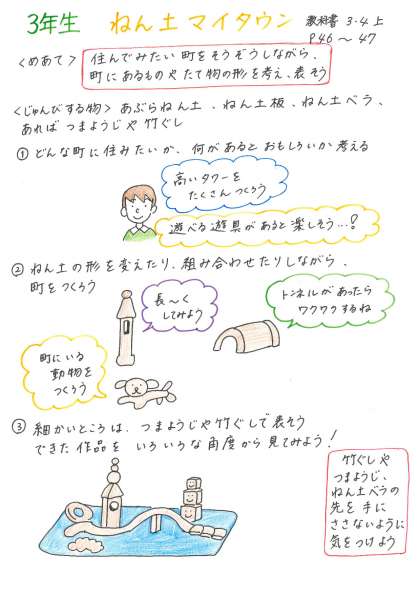 3年生 ねん土マイタウン 教科書 3・4 上
P46～47
<めあて> 住んでみたい町をそうぞうしながら、
町にあるものやたて物の形を考え、表そう
<じゅんびする物> あぶらねん土、ねん土板、ねん土ベラ、
あれば つまようじや竹ぐし
① どんな町に住みたいか、何があるとおもしろいか考える
高いタワーを
たくさんつくろう
遊べる遊具があると楽しそう…!
② ねん土の形を変えたり、組み合わせたりしながら、
町をつくろう
長～く
してみよう
トンネルがあったら
ワクワクするね
町にいる
動物を
つくろう
③ 細かいところは、つまようじや竹ぐしで表そう
できた作品を いろいろな角度から見てみよう!
竹ぐしや
つまようじ、
ねん土ベラの
先を手に
ささないように
気をつけよう